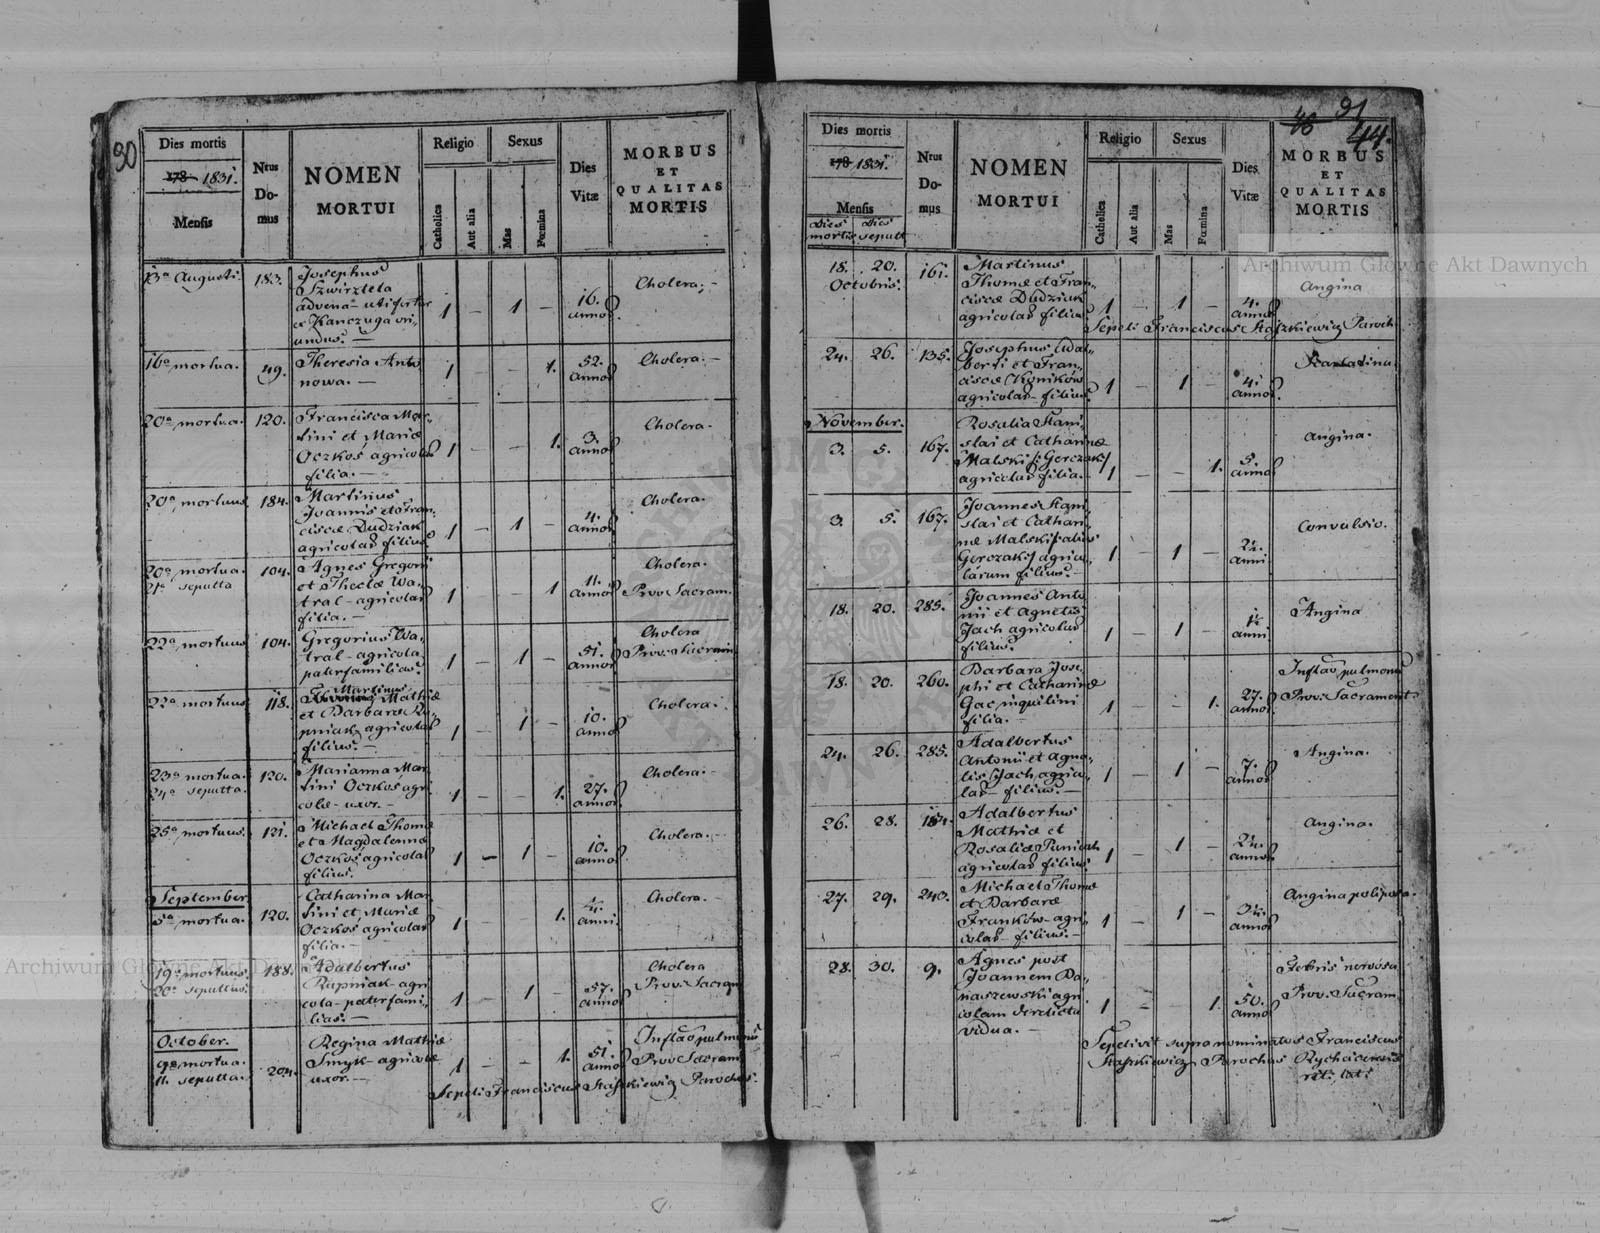 90
Dies mortis
178 1831.
Mensis
Nrus
Do-
mus
NOMEN
MORTUI
Religio
Catholica
Aut alia
Sexus
Mas
Fœmina
Dies
Vitæ
MORBUS
ET
QUALITAS
MORTIS
13a Augusti. 183. Josephus
advena
e Kanczuga ori„
undus. —
1 — 1 — 16. annor Cholera. —
16a mortua. 49. Theresia Anto
nowa. —
1 — — 1. 52. annor Cholera. —
20a mortua. 120. Francisca Mar„
tini et Mariæ
Oczkos agricolar
filia. —
1 — — 1. 3. annor Cholera.
20a mortuus 184. Martinus
Joannis et Fran„
ciscæ Dudziak
agricolar filius.
1 — 1 — 4. annor Cholera.
20a mortua. 104. Agnes Gregorii
21a sepulta et Theclæ Wa„
tral - agricolar
filia. —
1 — — 1 11. annor Cholera.
Prov. Sacram.
22a mortuus 104. Gregorius Wa„
tral - agricola
paterfamilias.
1 — 1 — 51. annor Cholera
Prov. Sacram
22a mortuus 118. Martinus
Mathiæ
et Barbaræ Ru„
pniak agricolar
filius. —
1 — 1 — 10. annor Cholera.
23a mortua. 120. Marianna Mar
24a sepulta. tini Oczkos agri
colæ - uxor. —
1 — — 1. 27. annor. Cholera. —
25a mortuus. 121. Michael Thomæ
et Magdalenæ
Oczkos agricolar
filius.
1 — 1 — 10. annor Cholera. —
September
5a mortua. 120. Catharina Mar„
tini et Mariæ
Oczkos agricolar
filia. —
1 — — 1. anni. Cholera. —
19a mortuus. 188. Adalbertus
20a sepultus. Rupniak - agri
cola - paterfami„
lias. —
1 — 1 — 57. annor Cholera
Prov. Sacram
October.
9a mortua. 204. Regina Mathiæ
11. sepulta. Smyk - agricolæ
uxor. —
1 — — 1. 51. annor Inflão pulmonū
Prov. Sacram
Sepeli Franciscus Staszkiewicz Parochus.
91
48 44.
Dies mortis
178 1831.
Mensis
Dies
mortis
Dies
sepult
Nrus
Do-
mus
NOMEN
MORTUI
Religio
Catholica
Aut alia
Sexus
Mas
Fœmina
Dies
Vitæ
MORBUS
ET
QUALITAS
MORTIS
18. 20. 161. Martinus
Octobris. Thomæ et Fran„
ciscæ Dudziak
agricolar filius
1 — 1 — 4. annor Angina
Sepeli Franciscus Staszkiewicz Paroch.
24. 26. 135. Josephus Adal„
berti et Fran„
ciscæ Koników
agricolar - filius.
1 — 1 — 4. annor
November.
3. 5. 167. Rosalia Stani„
slai et Catharinæ
Malski Gerczak
agricolar filia. —
1 — — 1. 5. annor Angina.
3. 5. 167. Joannes Stani„
slai et Cathari„
næ Malski alias
Gerczak agrico„
larum filius. —
1 — 1 — 2½. anni Convulsio.
18. 20. 285. Joannes Anto
nii et Agnetis
Jach agricolar
filius.
1 — 1 — 1½ anni Angina
18. 20. 260. Barbara Jose„
phi et Catharinæ
Gac inquilini
filia. —
1 — — 1. 27. annor Inflão pulmonū
Prov. Sacrament
24. 26. 285. Adalbertus
Antonii et Agne„
tis Jach agrico„
lar - filius. —
1 — 1 — 7. annor Angina.
26. 28. Adalbertus
Mathiæ et
Rosaliæ
agricolar filius.
1 — 1 — 2½. annor Angina.
27. 29. 240. Michael Thomæ
et Barbaræ
Franków - agri„
colar - filius. —
1 — 1 — 3½. annor Angina poliposa.
28. 30. 9. Agnes post
Joannem Ba„
naszewski agri
colam derelicta
vidua. —
1 — — 1. 50. annor Febris nervosa
Prov. Sacram.
Sepelivit supra nominatos Franciscus
Staszkiewicz Parochus Rychcicensis
rit: lat:
Archiwum Główne Akt Dawnych
Archiwum Główne Akt Dawnych